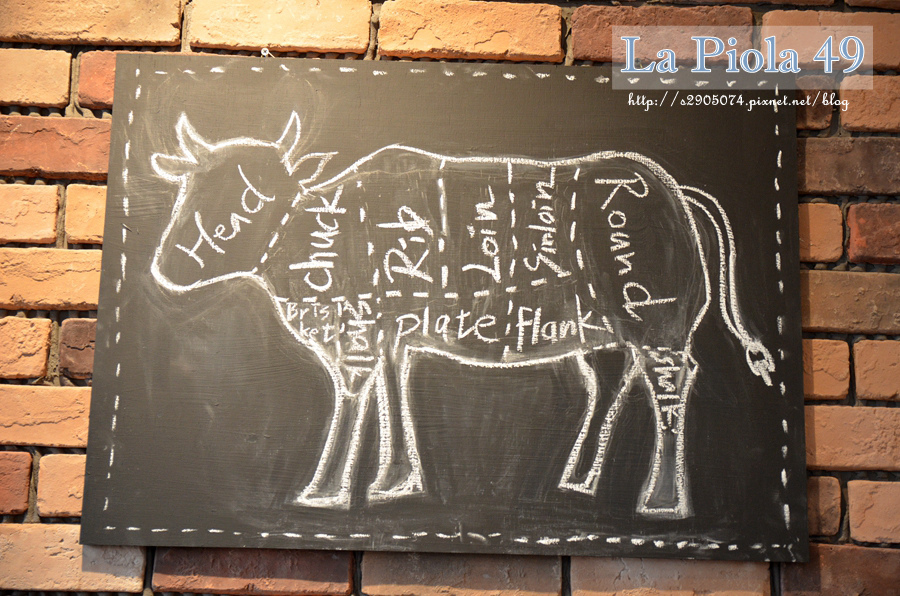 La Piola 49
http://s2905074.pixnet.net/blog
Head
Chuck
Rib
Loin
Sirloin
Round
Bris
ket
Shank
Plate
flank
Shank